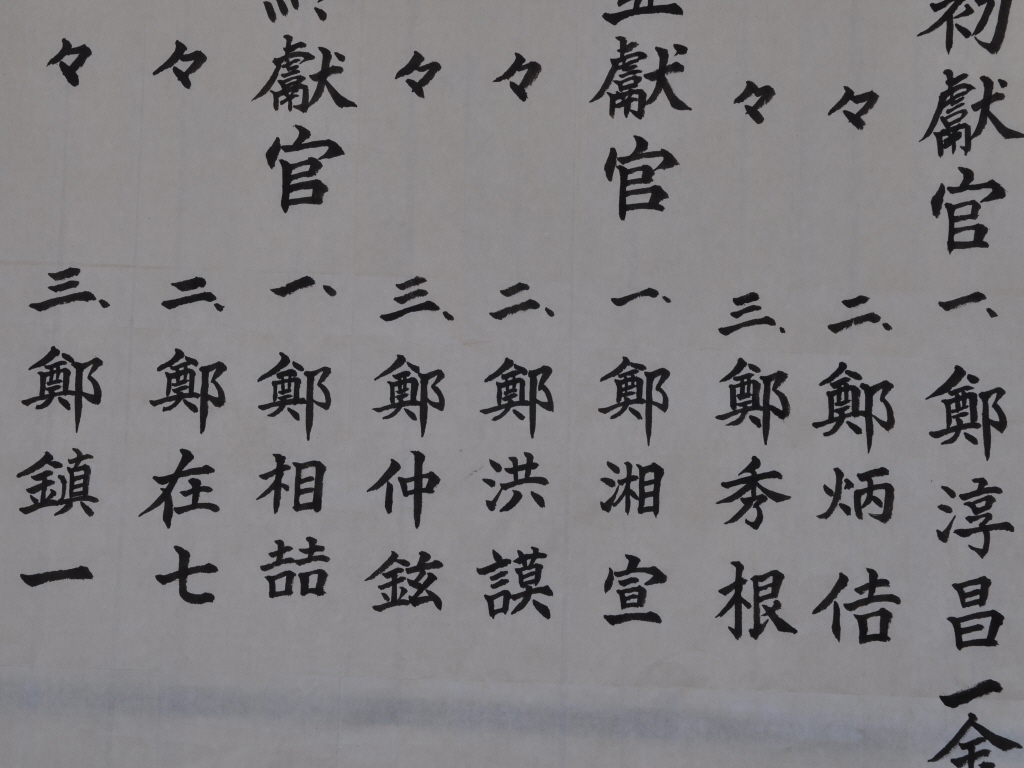 初獻官 一、鄭淳昌 一金
々 二、鄭炳佶
々 三、鄭秀根
亞獻官 一、鄭湘宣
々 二、鄭洪謨
々 三、鄭仲鉉
終獻官 一、鄭相喆
々 二、鄭在七
々 三、鄭鎭一